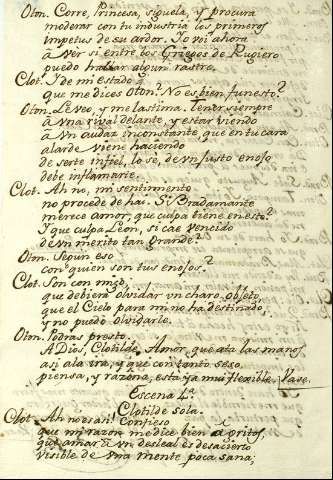 Oton. Corre, Princesa, siguela, y procura
moderar con tu industria los primeros
impetus de su ardor. Yo voi ahora
à ver si entre los Griegos de Rugiero
puedo hallar algun rastro.
Clot. Y de mi estado
que me dices Oton? No es bien funesto?
Oton. Le veo, y me lastima. Tener siempre
à una rival delante, y estar viendo
à un audaz inconstante, que en tu cara
alarde viene haciendo
de serte infiel, lo sè, de un justo enojo
debe inflamarte.
Clot. Ah no, mi sentimento
no procede de hai. Si Bradamante
merece amor, que culpa tiene en esto?
Y que culpa Leon, si cae vencido
de un merito tan grande?
Oton. Segun eso
con quien son tus enojos?
Clot. Son conmigo,
que debiera olvidar un charo objeto,
que el Cielo para mi no ha destinado,
y no puedo olvidarle.
Oton. Podras presto.
A Dios, Clotilde. Amor, que ata las manos
asi à la ira, y que con tanto seso
piensa, y razona, està ya mui flexible. Vase.
Escena 4ª
Clotilde sola.
Clot. Ah no es asi! Confieso
que mi razon me dice bien à gritos,
que amar à un desleal es desacierto
visible de una mente poca sana;